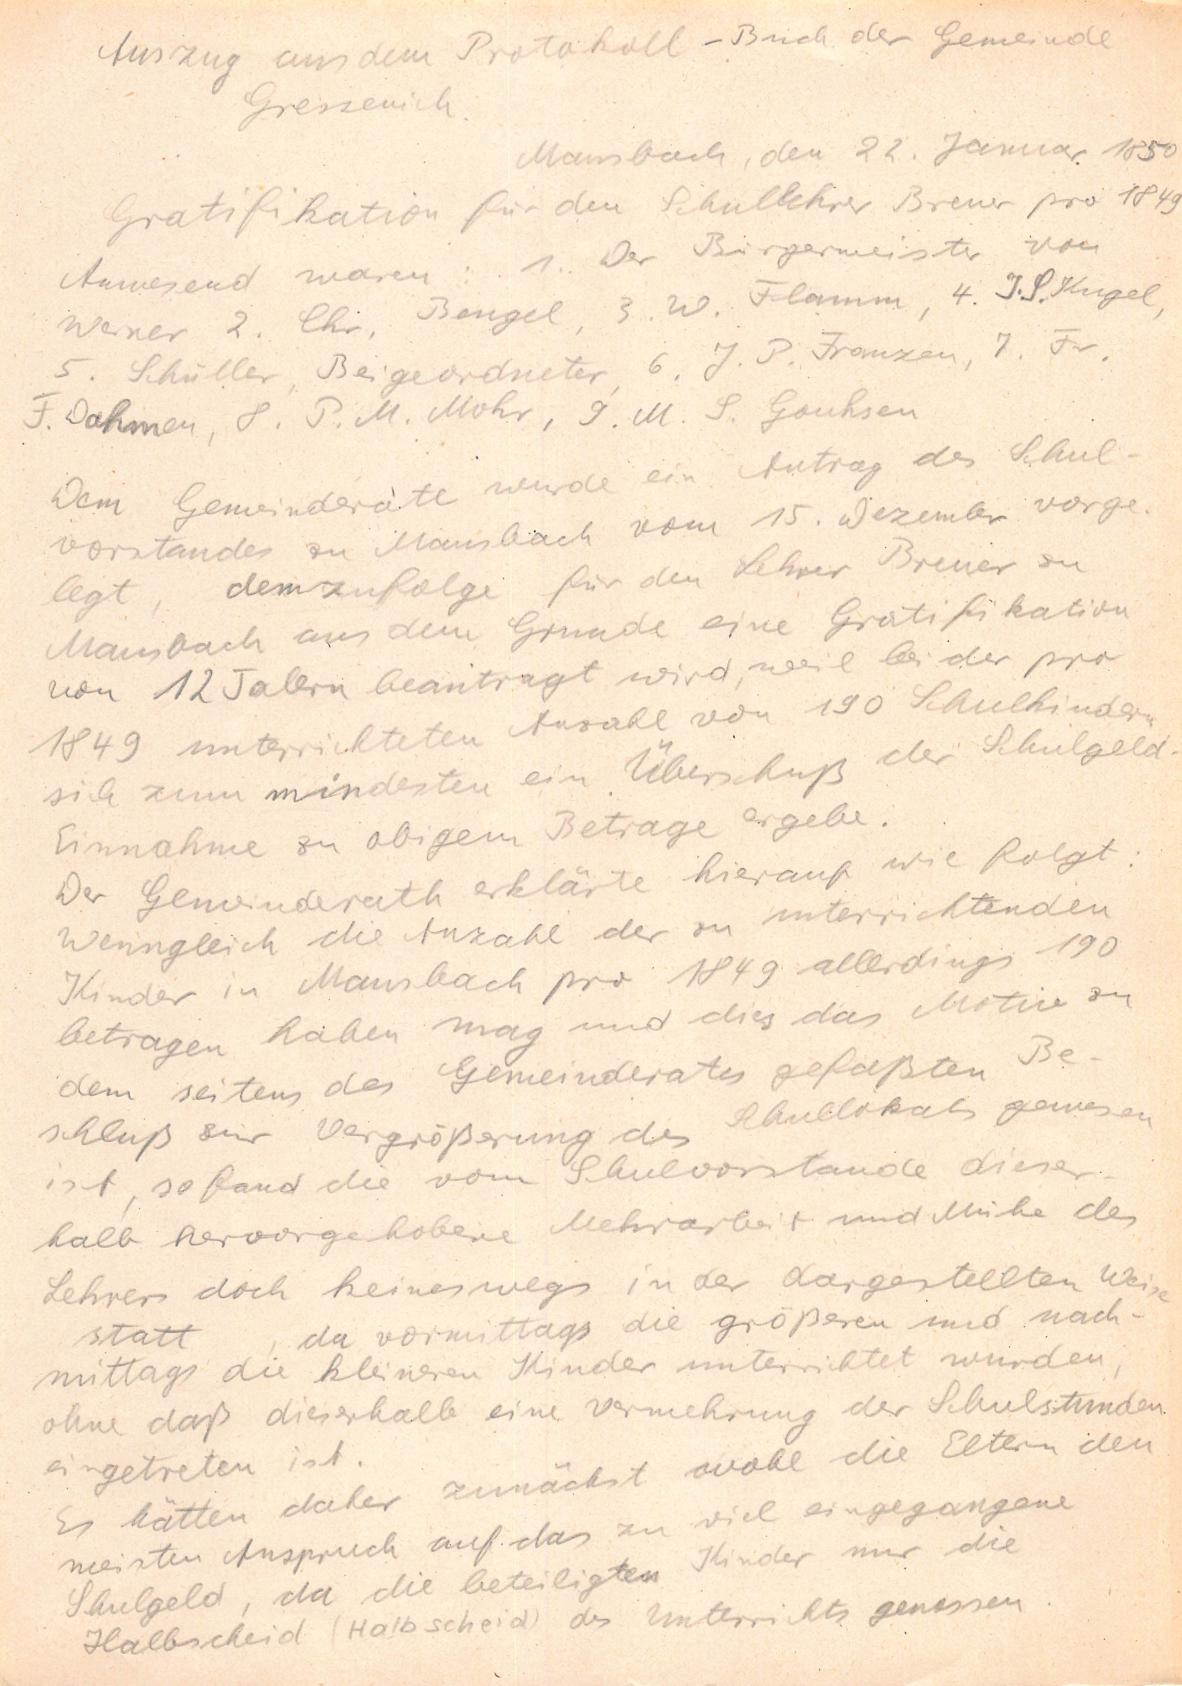 Auszug aus dem Protokoll - Buch der Gemeinde
Gressenich.
Mausbach, den 22. Januar 1850
Gratifikation für den Schullehrer Breuer pro 1849
Anwesend waren: 1. Der Bürgermeister von
Werner 2. Chr. Bengel, 3. W. Flamm, 4. J.S. Kugel,
5. Schüller, Beigeordneter, 6. J. P. Franzen, 7. Fr.
F. Dahmen, 8. P. M. Mohr, 9. M. S.
Dem Gemeinderate wurde ein Antrag des Schul-
vorstandes zu Mausbach vom 15. Dezember vorge-
legt, demzufolge für den Lehrer Breuer zu
Mausbach aus dem Grunde eine Gratifikation
von 12 Talern beantragt wird, weil bei der pro
1849 unterrichteten Anzahl von 190 Schulkindern
sich zum mindesten ein Überschuß der Schulgeld-
Einnahme zu obigem Betrage ergebe.
Der Gemeinderath erklärte hierauf wie folgt:
Wenngleich die Anzahl der zu unterrichtenden
Kinder in Mausbach pro 1849 allerdings 190
betragen haben mag und dies das Motiv zu
dem seitens des Gemeinderates gefaßten Be-
schluß zur Vergrößerung des Schullokals gewesen
ist, so fand die vom Schulvorstande dieser-
halb hervorgehobene Mehrarbeit und Mühe des
Lehrers doch keineswegs in der dargestellten Weise
statt, da vormittags die größeren und nach-
mittags die kleineren Kinder unterrichtet wurden,
ohne daß dieserhalb eine Vermehrung der Schulstunden
eingetreten ist.
Es hätten daher zunächst wohl die Eltern den
meisten Anspruch auf das zu viel eingegangene
Schulgeld, da die beteiligten Kinder nur die
Halbscheid (Halbscheid) des Unterrichts genossen.